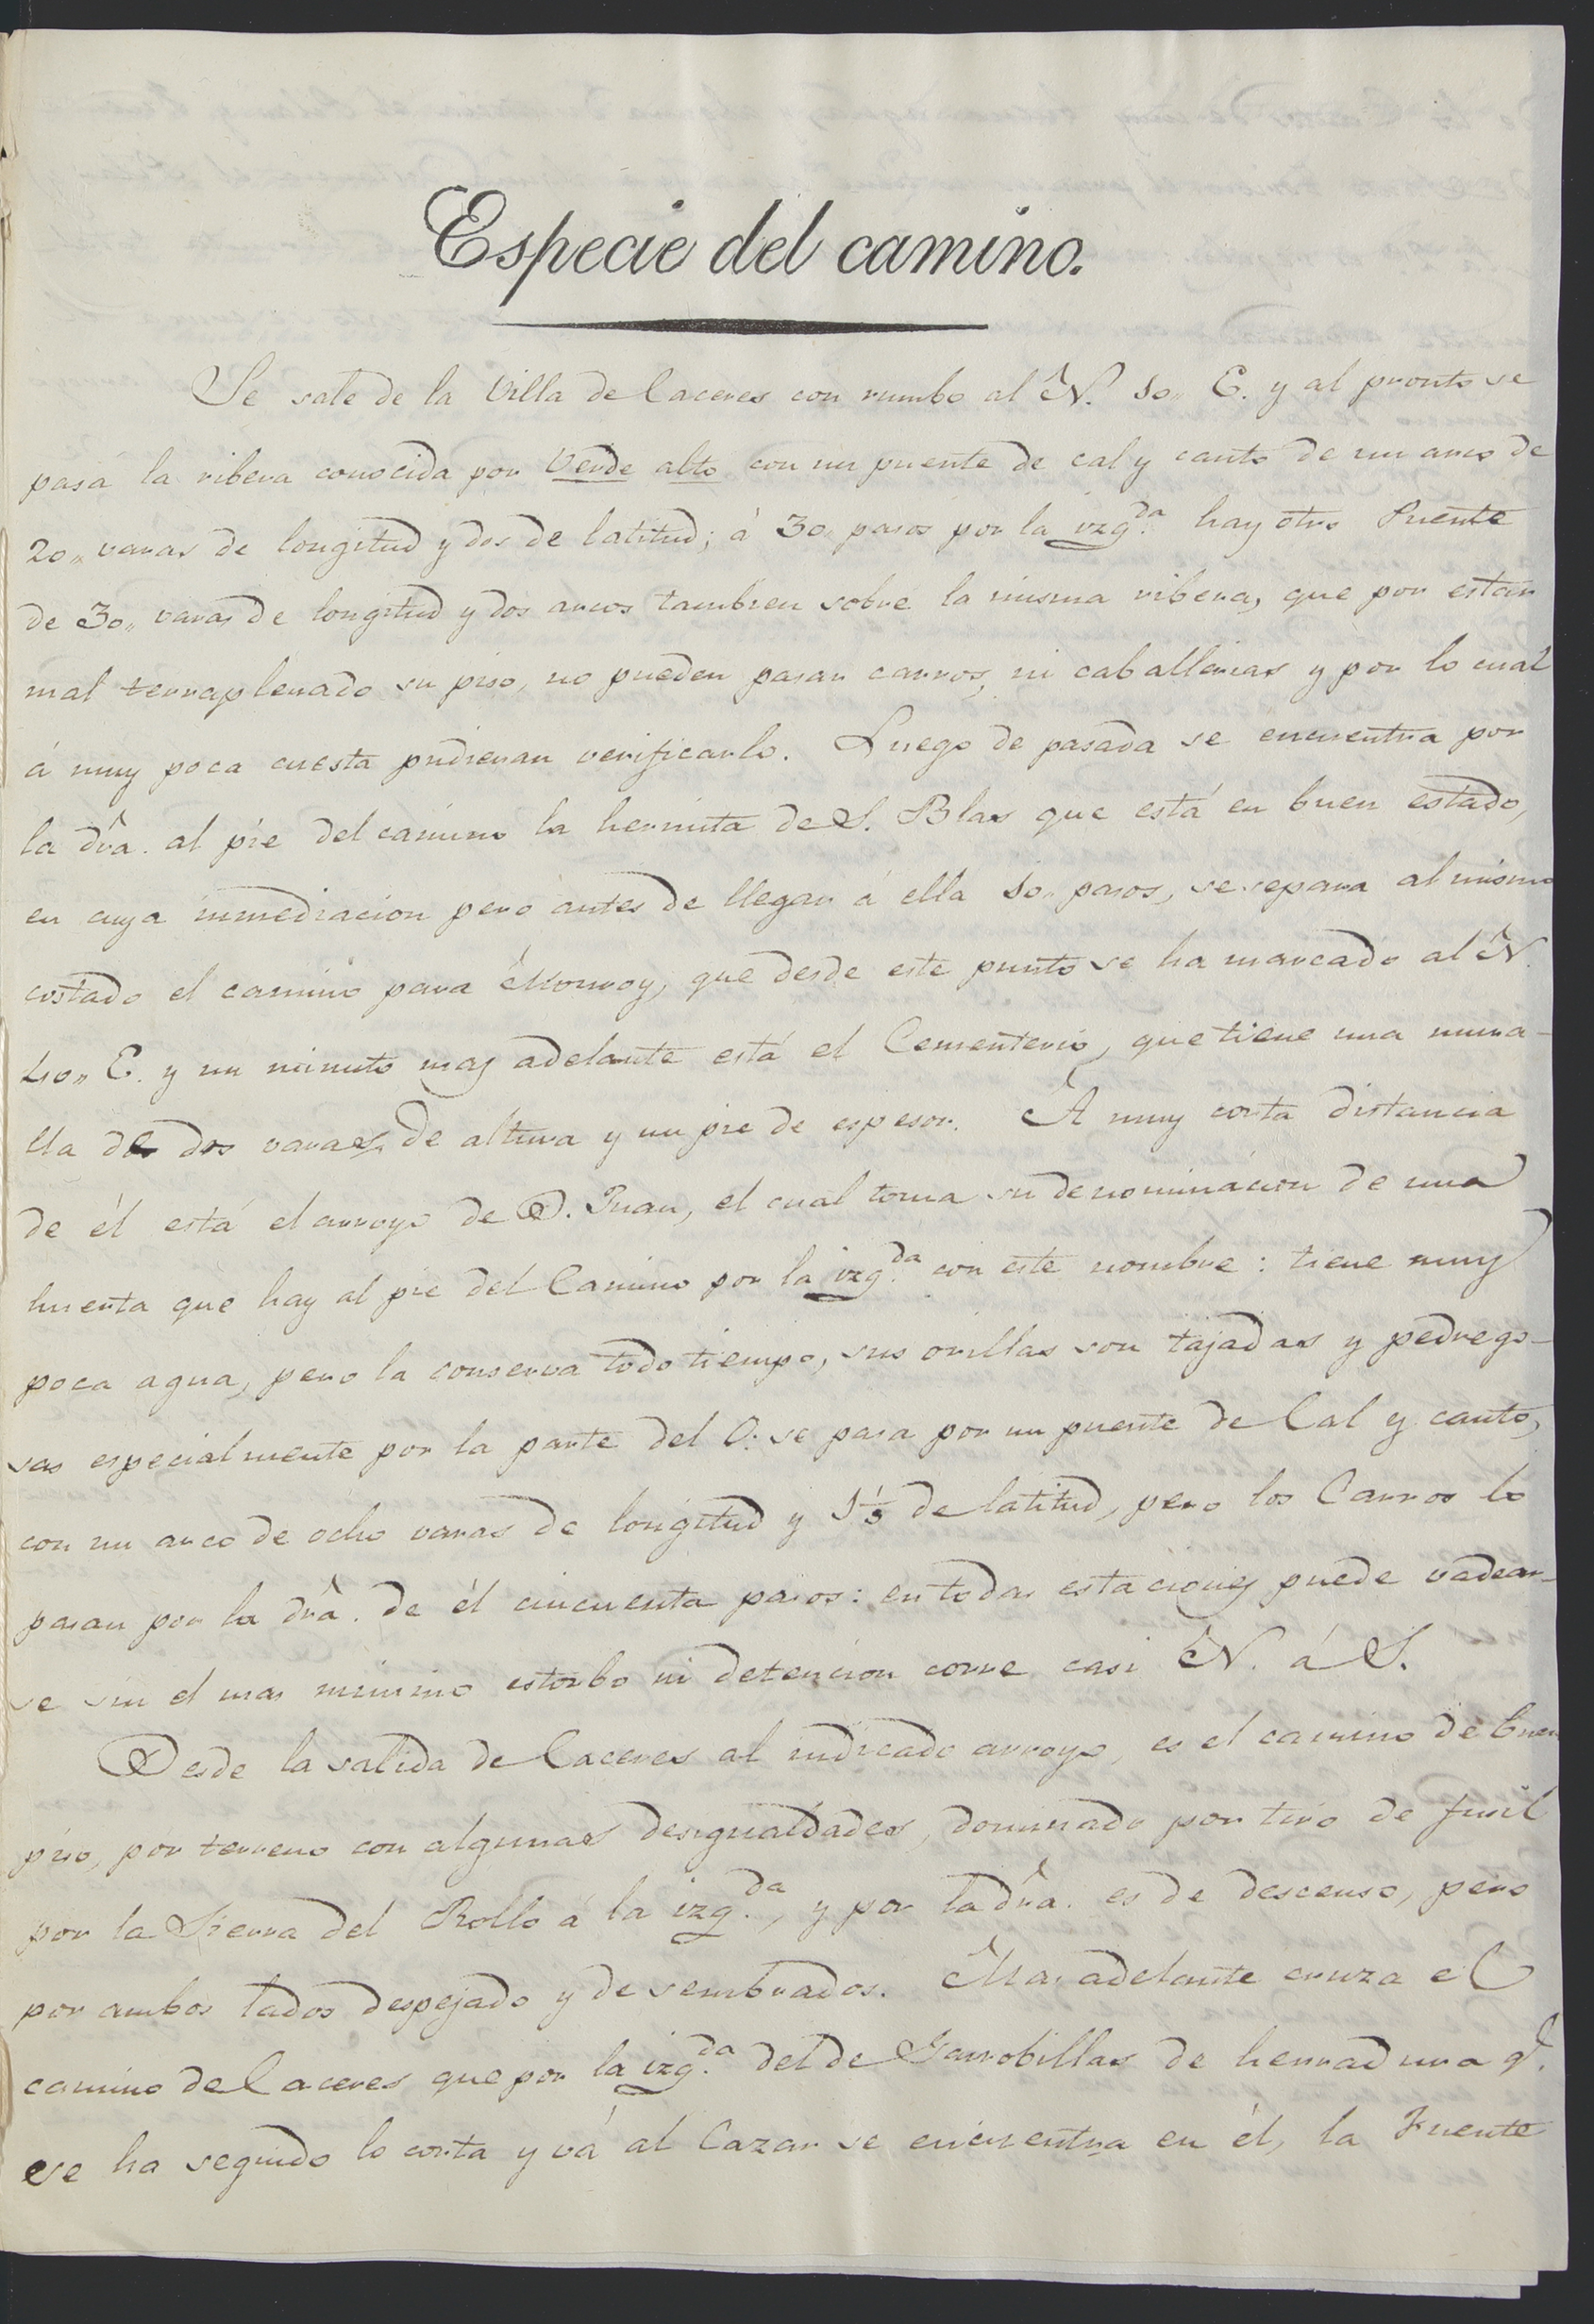 Especie del camino.
Se sale de la Villa de Caceres con rumbo al N. 10,, E. y al pronto se
pasa la ribera conocida por Verde alto con un puente de cal y canto de un arco de
20,, varas de longitud y dos de latitud; á 30,, pasos por la izq.da hay otro Puente
de 30,, varas de longitud y dos arcos tambien sobre la misma ribera, que por estár
mal terraplenado su piso, no pueden pasar carros, ni caballerias y por lo cual
á muy poca cuesta pudieran verificarlo. Luego de pasada se encuentra por
la dra. al pie del camino la hermita de S. Blas que está en buen estado,
en cuya inmediacion pero antes de llegar á ella 10,, pasos, se separa al mismo
costado el camino para Monroy, que desde este punto se ha marcado al N.
40,, E. y un minuto mas adelante está el Cementerio, que tiene una mura-
lla de dos varas de altura y un pie de espesor. A muy corta distancia
de él está el arroyo de D. Juan, el cual toma su denominacion de una
huerta que hay al pie del Camino por la izq.da con este nombre: tiene muy
poca agua, pero la conserva todo tiempo, sus orillas son tajadas y pedrego-
sas especialmente por la parte del O: se pasa por un puente de Cal y canto,
con un arco de ocho varas de longitud y 1 1/3 de latitud, pero los Carros lo
pasan por la dra. de él cincuenta pasos: en todas estaciones puede vadear-
se sin el mas minimo estorbo ni detencion corre casi N. á S.
Desde la salida de Caceres al indicado arroyo, es el camino de buen
piso, por terreno con algunas desigualdades, dominado por tiro de fusil
por la Sierra del Rollo á la izq.da, y por la dra. es de descenso, pero
por ambos lados despejado y de sembrados. Mas adelante cruza el
camino de Caceres que por la izq.da del de Garrobillas de herradura q.e
se ha seguido lo corta y vá al Cazar se encuentra en él, la Fuente